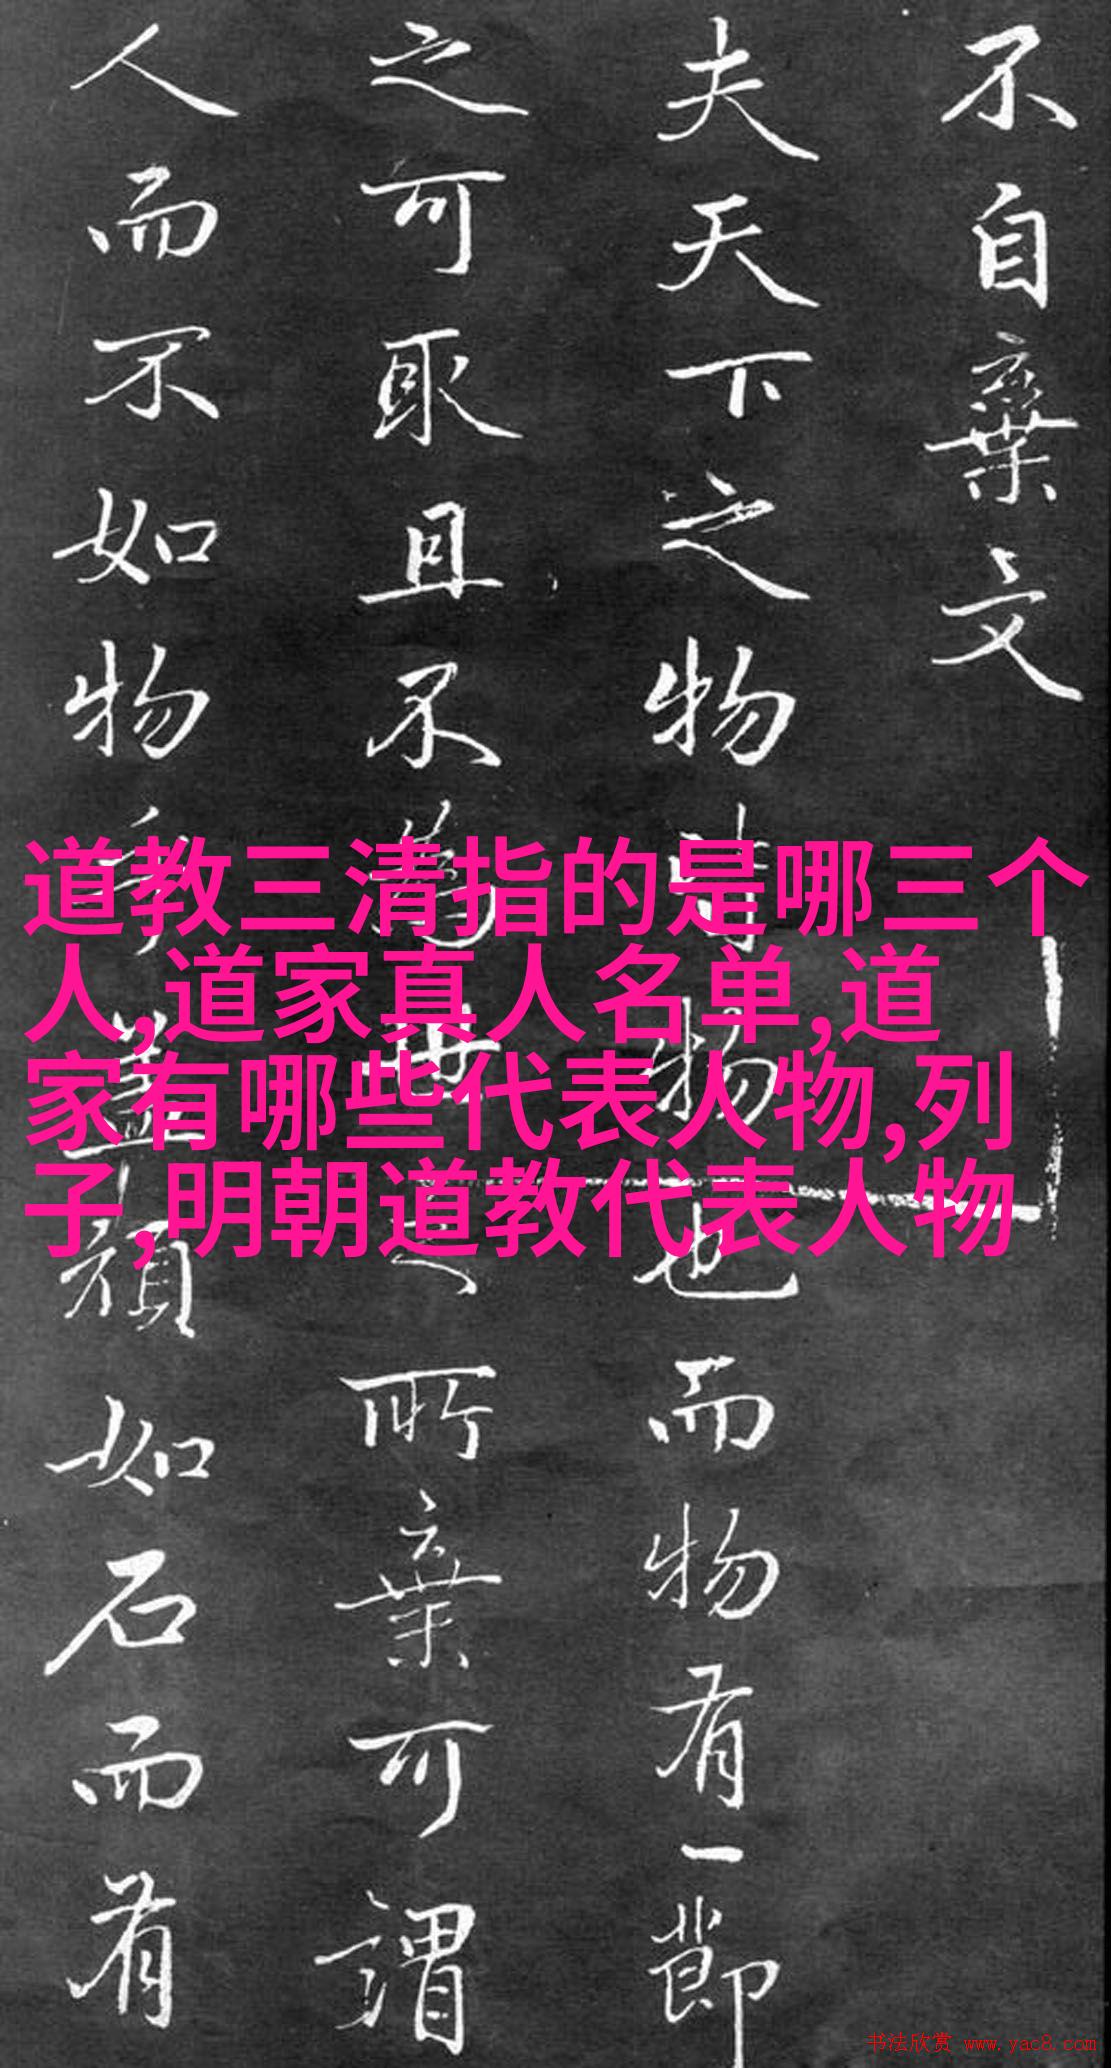 不自棄文
夫天下之物皆物也而物有一節
之可取且不為世之所棄可謂
人而不如物乎蓋頑如石而有
道教三清指的是哪三个
人,道家真人名单,道
家有哪些代表人物,列
子,明朝道教代表人物
书法欣赏 www.yac8.com